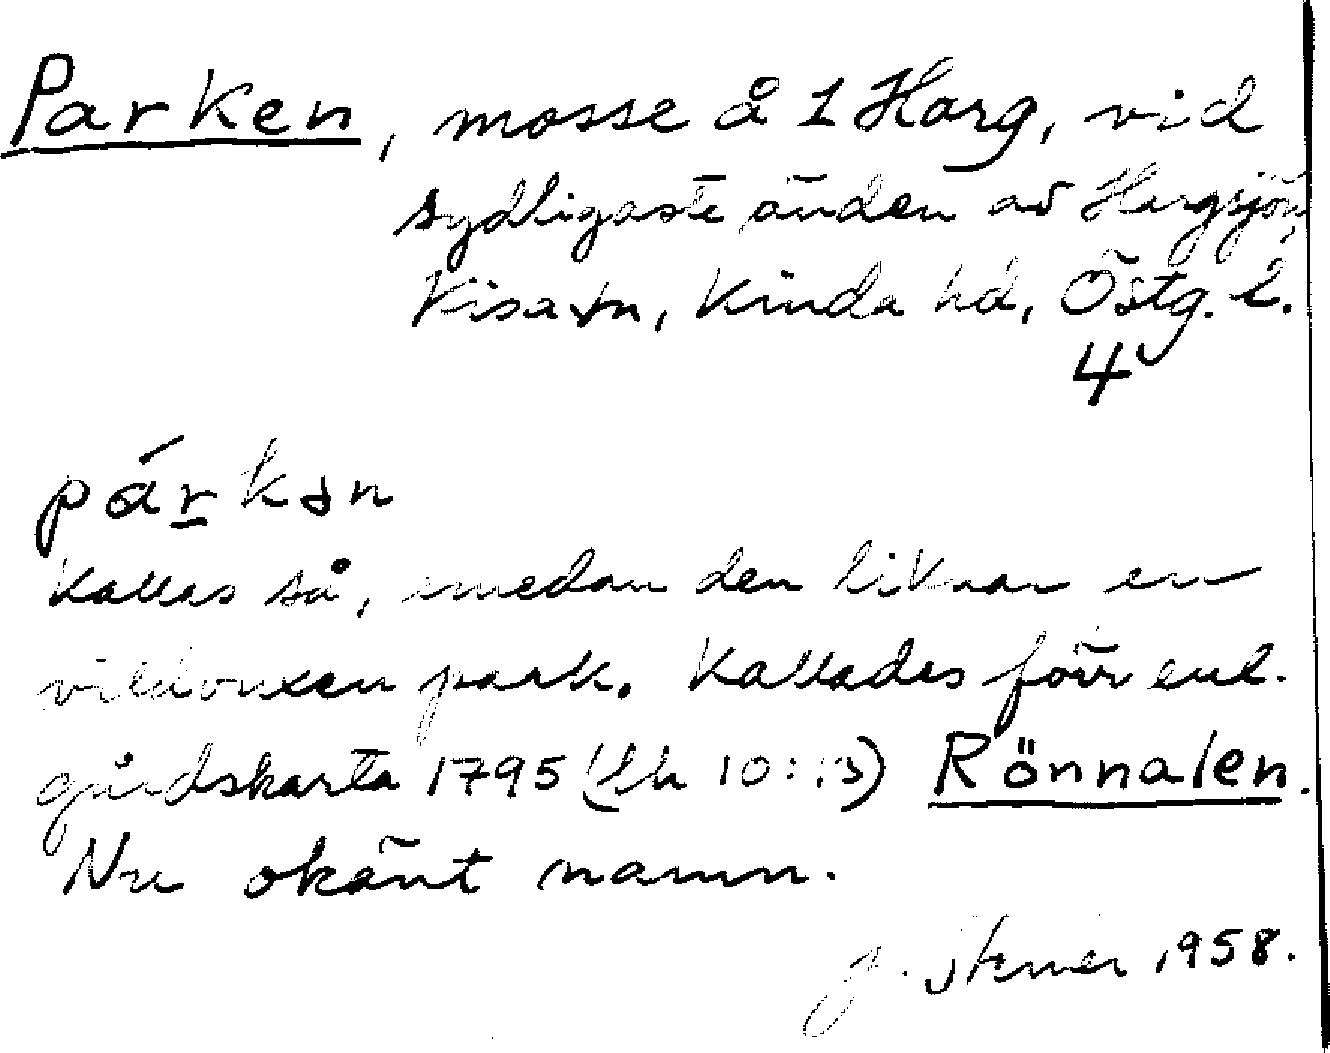 Parken, mosse å 1 Harg, vid
sydligaste änden av Hargsjön,
Kisa sn, Kinda hd, Östg. l.
4
párkən
Kallas så, emedan den liknar en
vildvuxen park. Kallades förr enl.
gårdskarta 1795 (Lh 10:13) Rönnalen.
Nu okänt namn.
1958.